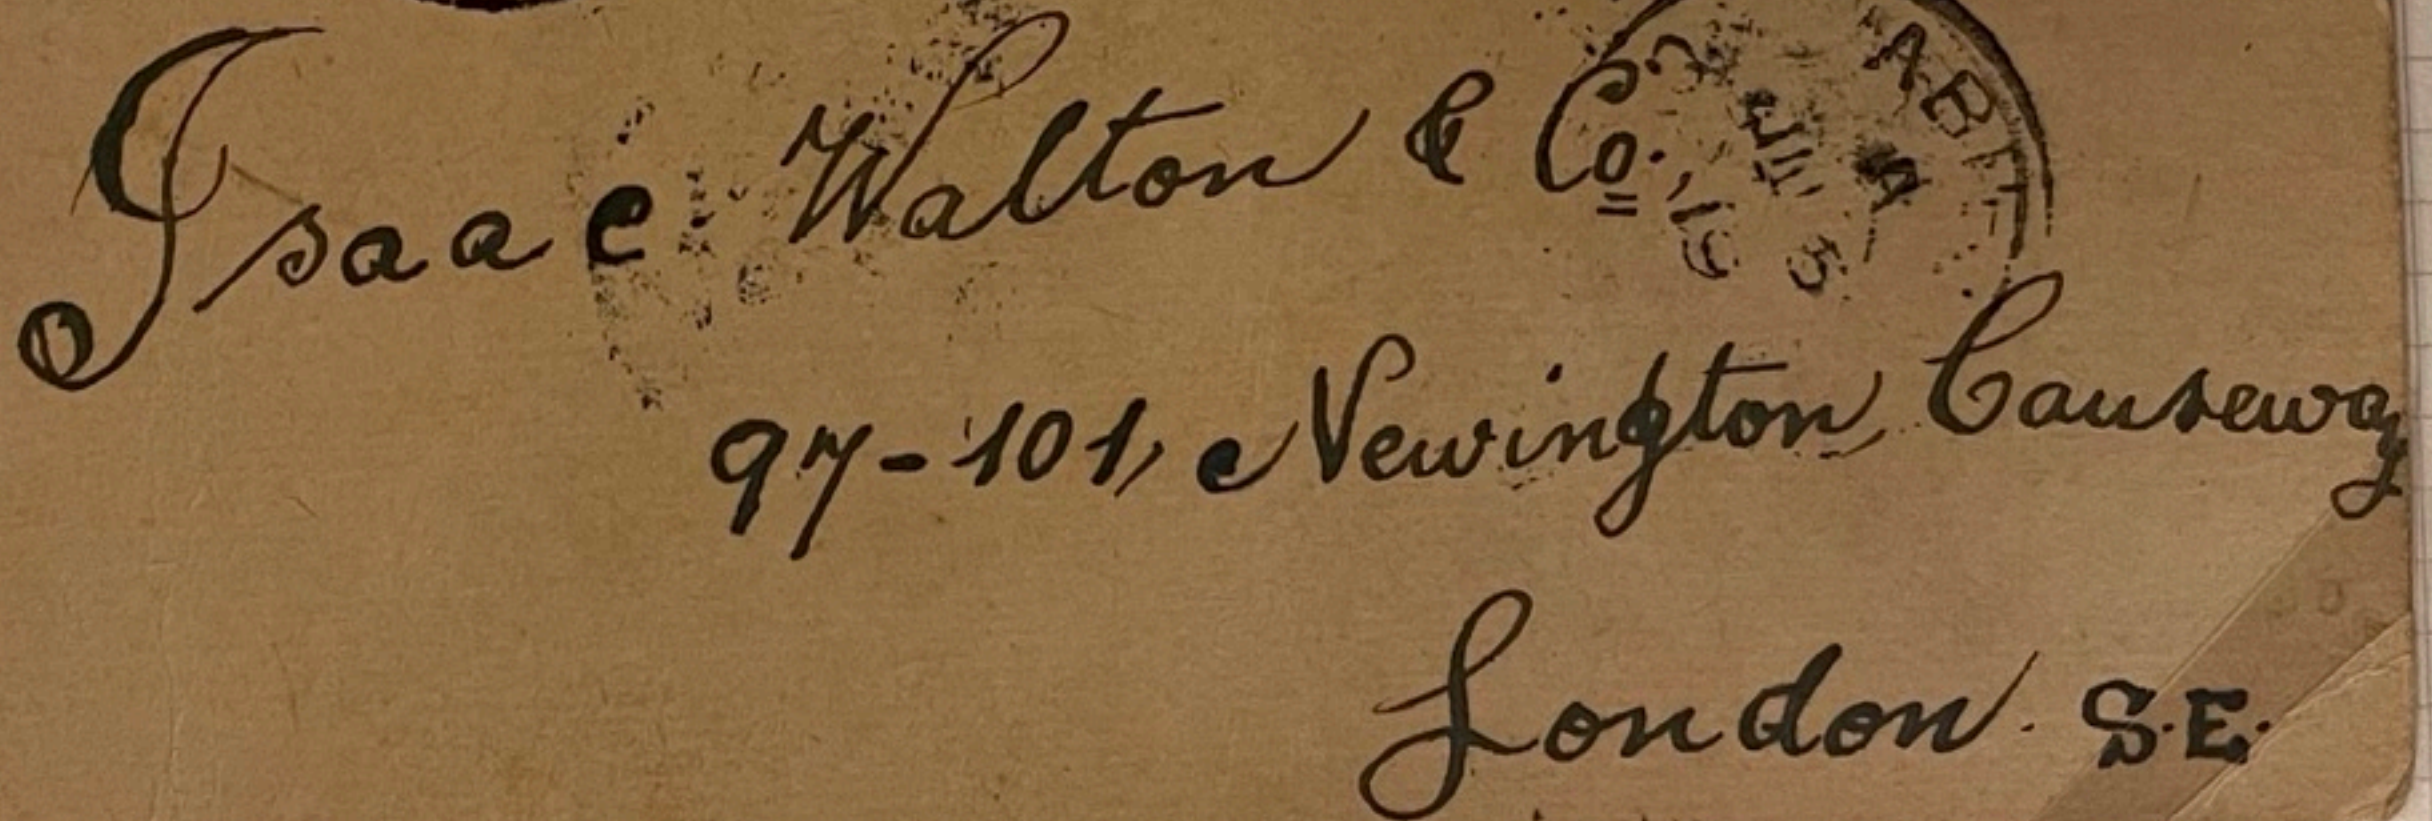 Isaac Walton & Co.,
97-101, Newington Causeway
London. S.E.